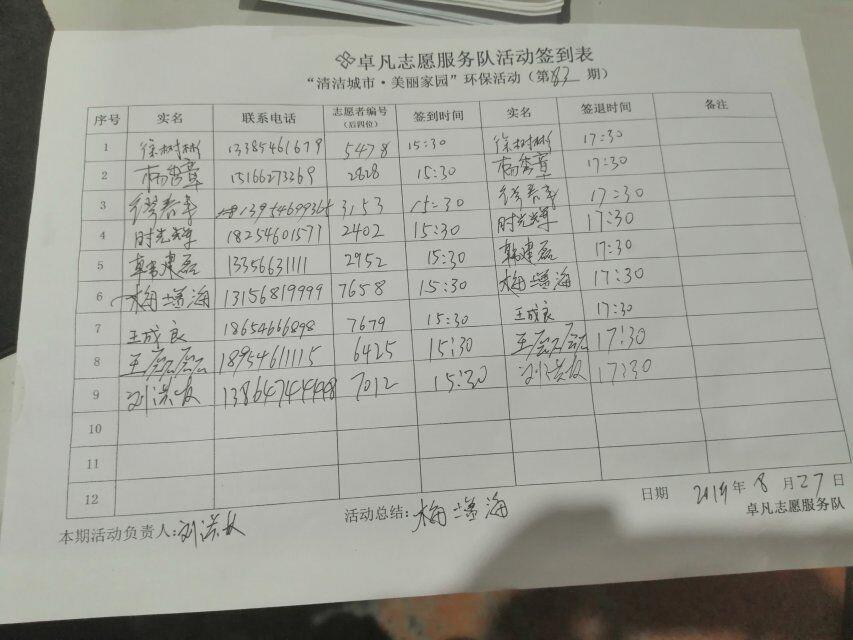 卓凡志愿服务队活动签到表
“清洁城市·美丽家园”环保活动（第82期）
序号 实名 联系电话 志愿者编号（后四位） 签到时间 实名 签退时间 备注
1 徐树彬 13385461679 5478 15:30 徐树彬 17:30
2 杨秀章 15166273369 2828 15:30 杨秀章 17:30
3 13954699365 3153 15:30 17:30
4 时光辉 18254601571 2402 15:30 时光辉 17:30
5 韩建磊 13356631111 2952 15:30 韩建磊 17:30
6 梅海 13156819999 7658 15:30 梅海 17:30
7 王成良 18654666898 7679 15:30 王成良 17:30
8 王 18954611115 6425 15:30 王 17:30
9 刘洪 13864744448 7012 15:30 刘洪 17:30
10
11
12
日期 2019年8月27日
本期活动负责人:刘洪 活动总结:梅海 卓凡志愿服务队